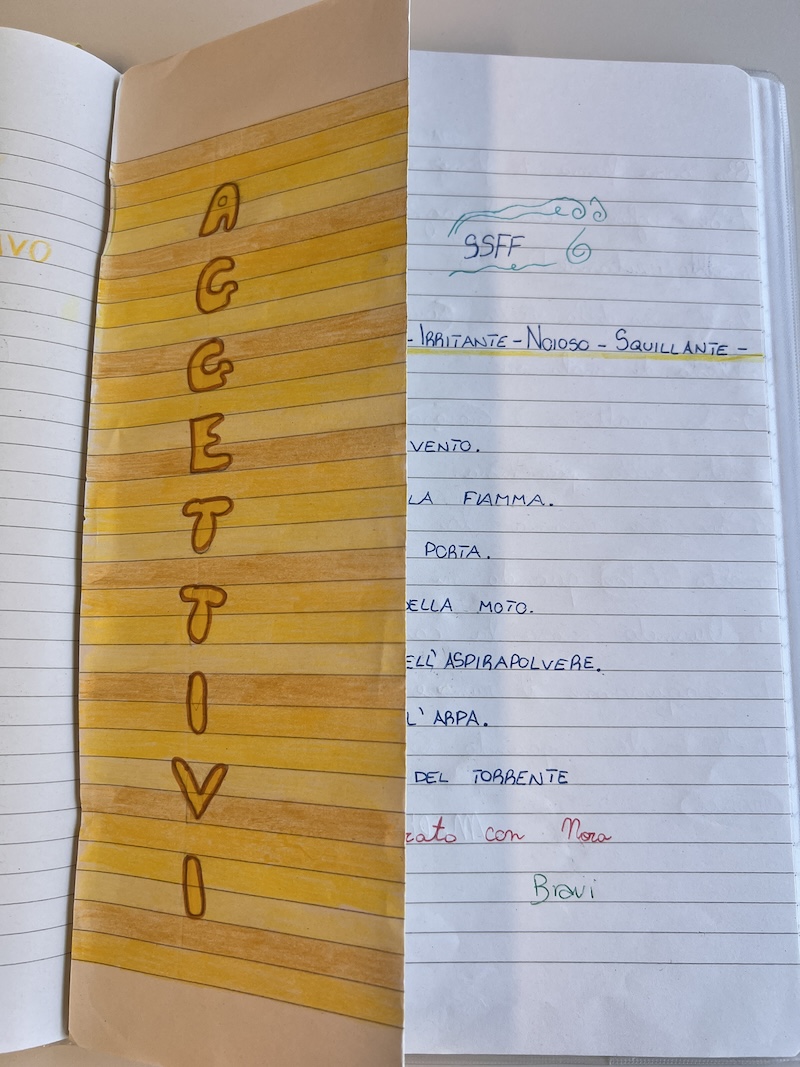 IVO
AGGETTIVI
SSFF
- IRRITANTE - NOIOSO - SQUILLANTE -
VENTO.
LA FIAMMA.
PORTA.
ELLA MOTO.
ELL'ASPIRAPOLVERE.
L'ARPA.
DEL TORRENTE
rato con Nora
Bravi